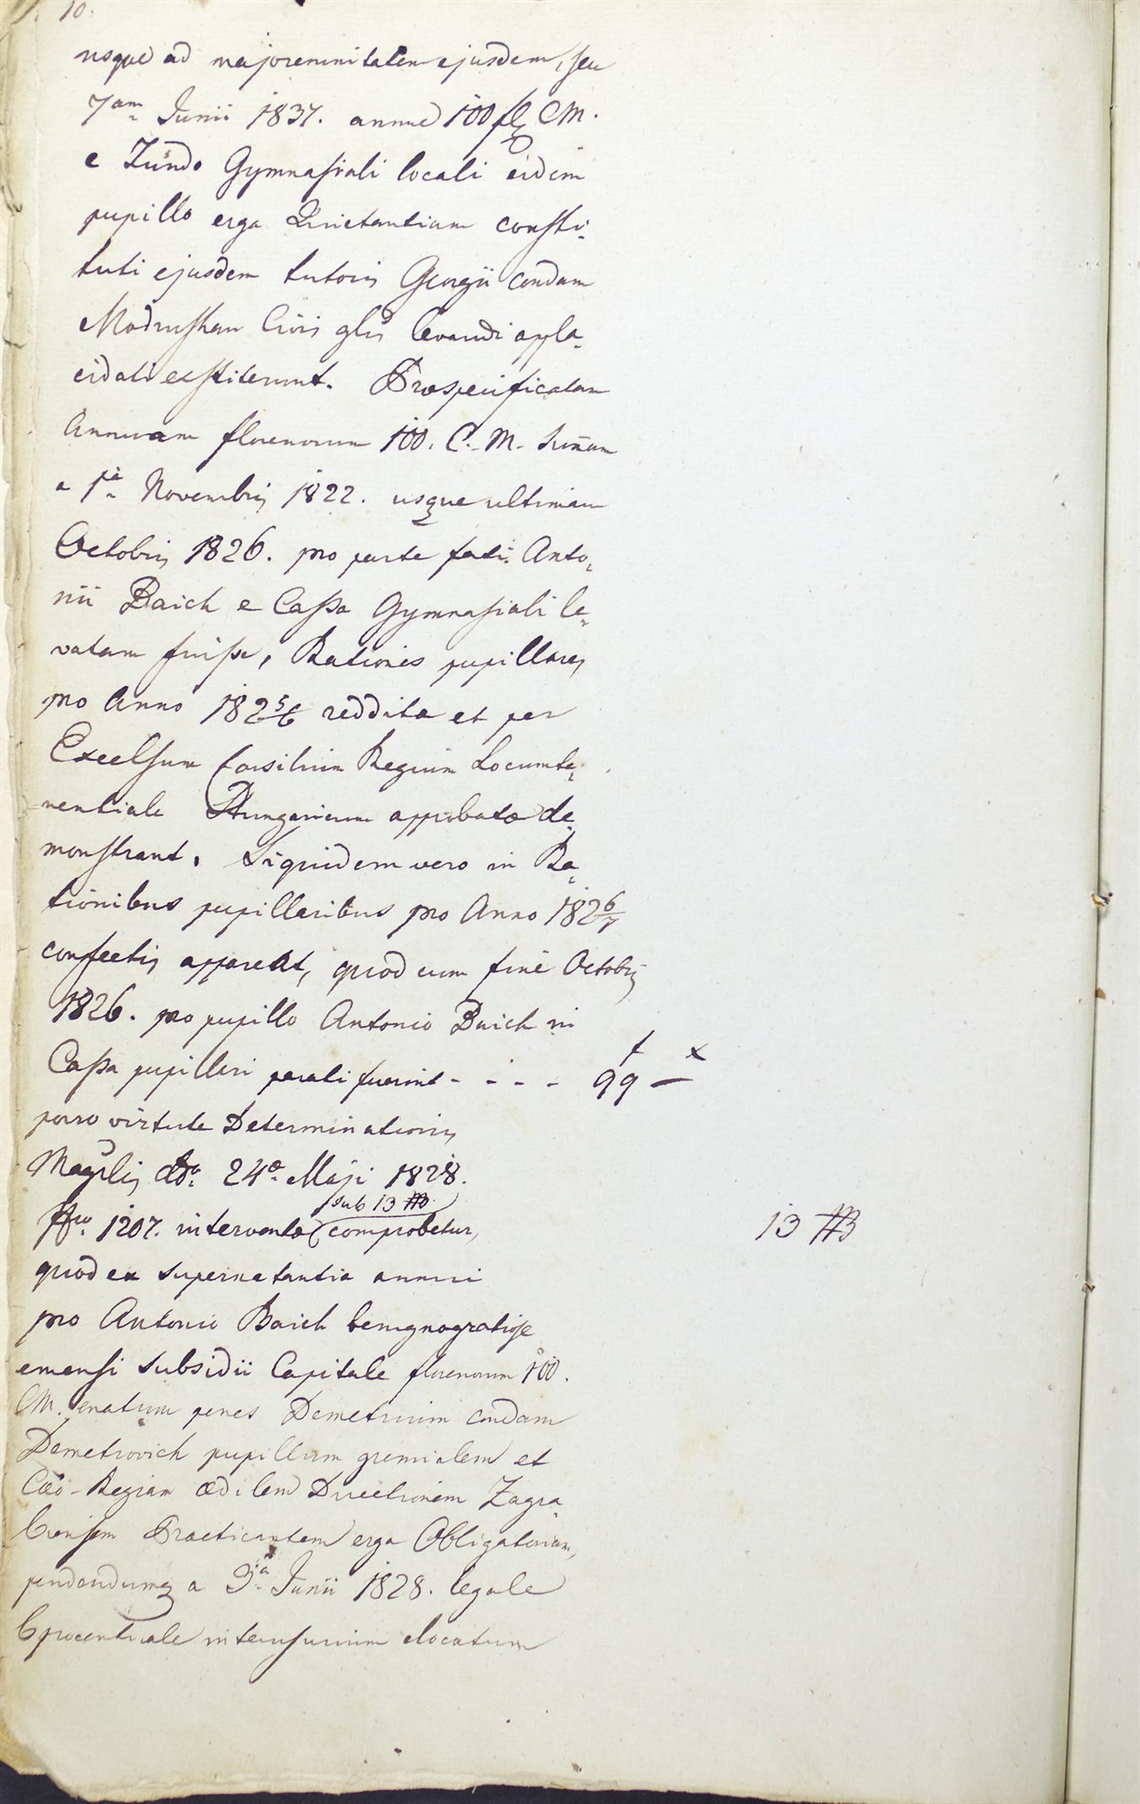 10.
usque ad majorennitatem ejusdem, seu
7am Junii 1837. annue 100 fl CM.
e Fundo Gymnasiali locali eidem
pupillo erga Quietantiam consti-
tuti ejusdem tutoris Georgii condam
Civis levandi appla-
cidati exstiterunt. Praespecificatam
Annuam florenorum 100. C. M. Sumam
a 1a Novembris 1822. usque ultimam
Octobris 1826. pro parte fati Anto-
nii Baich e Cassa Gymnasiali le-
vatam fuisse, Rationes pupillares
pro Anno 182 5/6 reddita et per
Excelsum Consilium Regium Locumte-
nentiale Hungaricum approbatae de-
monstrant. Siquidem vero in Ra-
tionibus pupillaribus pro Anno 182 6/7
confectis appareat, quod cum fine Octobris
1826. pro pupillo Antonio Baich in
f x
Cassa pupillari parati fuerint - - - - 99 —
porro virtute Determinationis
Maglis ddo 24a Maji 1828.
sub 13 #B
Nro 1207. interventae comprobetur,
13 #B
quod ex supernatantia annui
pro Antonio Baich benignogratiose
emensi subsidii Capitale florenorum 100.
CM. enatum penes Demetrium condam
Demetrovich pupillum gremialem et
Caeo-Regiam aedilem Directionem Zagra
biensem Practicantem erga Obligatoriam,
pendendumq a 3a Junii 1828. legale
6 procentuale interusurium elocatum